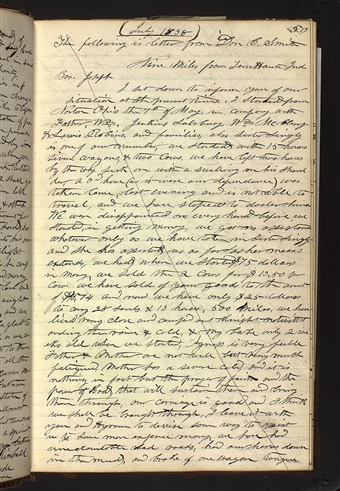 July 1838 50
The following is letter from Don C. Smith
Nine Miles from Terre Haute Ind
Bro. Joseph
I set down to inform you of our
situation at the present time. I started from
Norton Ohio the 7th of May in company with
Father, Wm, Jenkins Salsbury, Wm McClary
& Lewis Robins, and families, also Sister Singly
is one of our number, we started with 15 horses
seven wagons & two Cows, we have left two horses
by the way sick one with a
taken lame last evening and is not able to
travel, and we have stoped to doctor him
We were disappointed on every hand before we
started in getting money, we got no assistance
whatever only as we have taken in sister Singly
and she has assisted us as far as her means
extends, we had when we started $75 dollars
in money, we sold the 2 Cows for $13.50 per
Cow we have sold of your goods to the amt
of $45.74 and now we have only $25 dollars
to carry 28 souls & 13 horses, 500 miles, we have
lived very close and camped out knight notwithst
anding the rain & cold, & my babe only 2 weeks
old when we started, Agness is very feeble
Father & Mother are not well but very much
fatigued, Mother has a severe cold, and it is
nothing in fact but the prayer of faith and the
power of God, that will sustain them and bring
them through, our courage is good and I think
we shall be brought through, I leave it with
you and Hyrum to devise some way to assist
us to some more expence money, we have had
unaccountable bad roads, had our horses down
in the mud, and broke of one wagon tongue